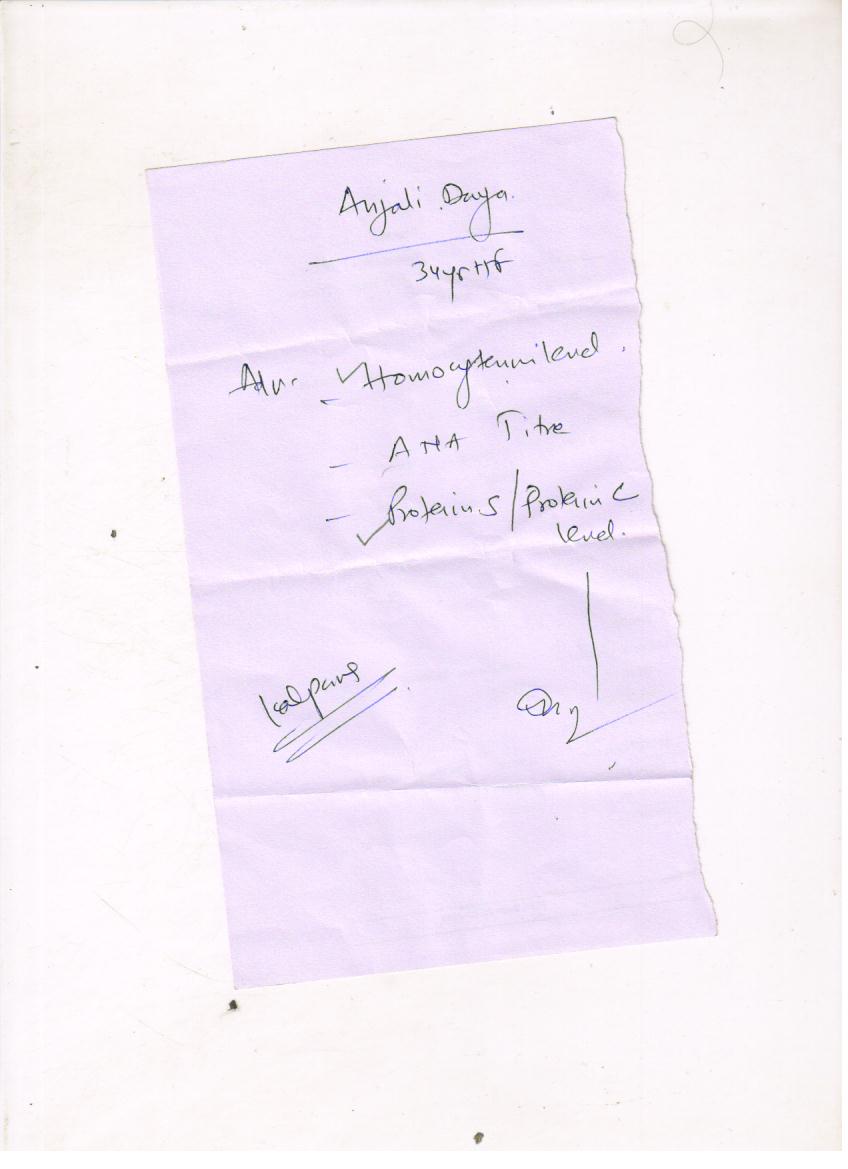 Anjali Daya.
34yr
Adv. - Homocystein level.
- ANA Titre
- Protein S / Protein C
level.
kalpana